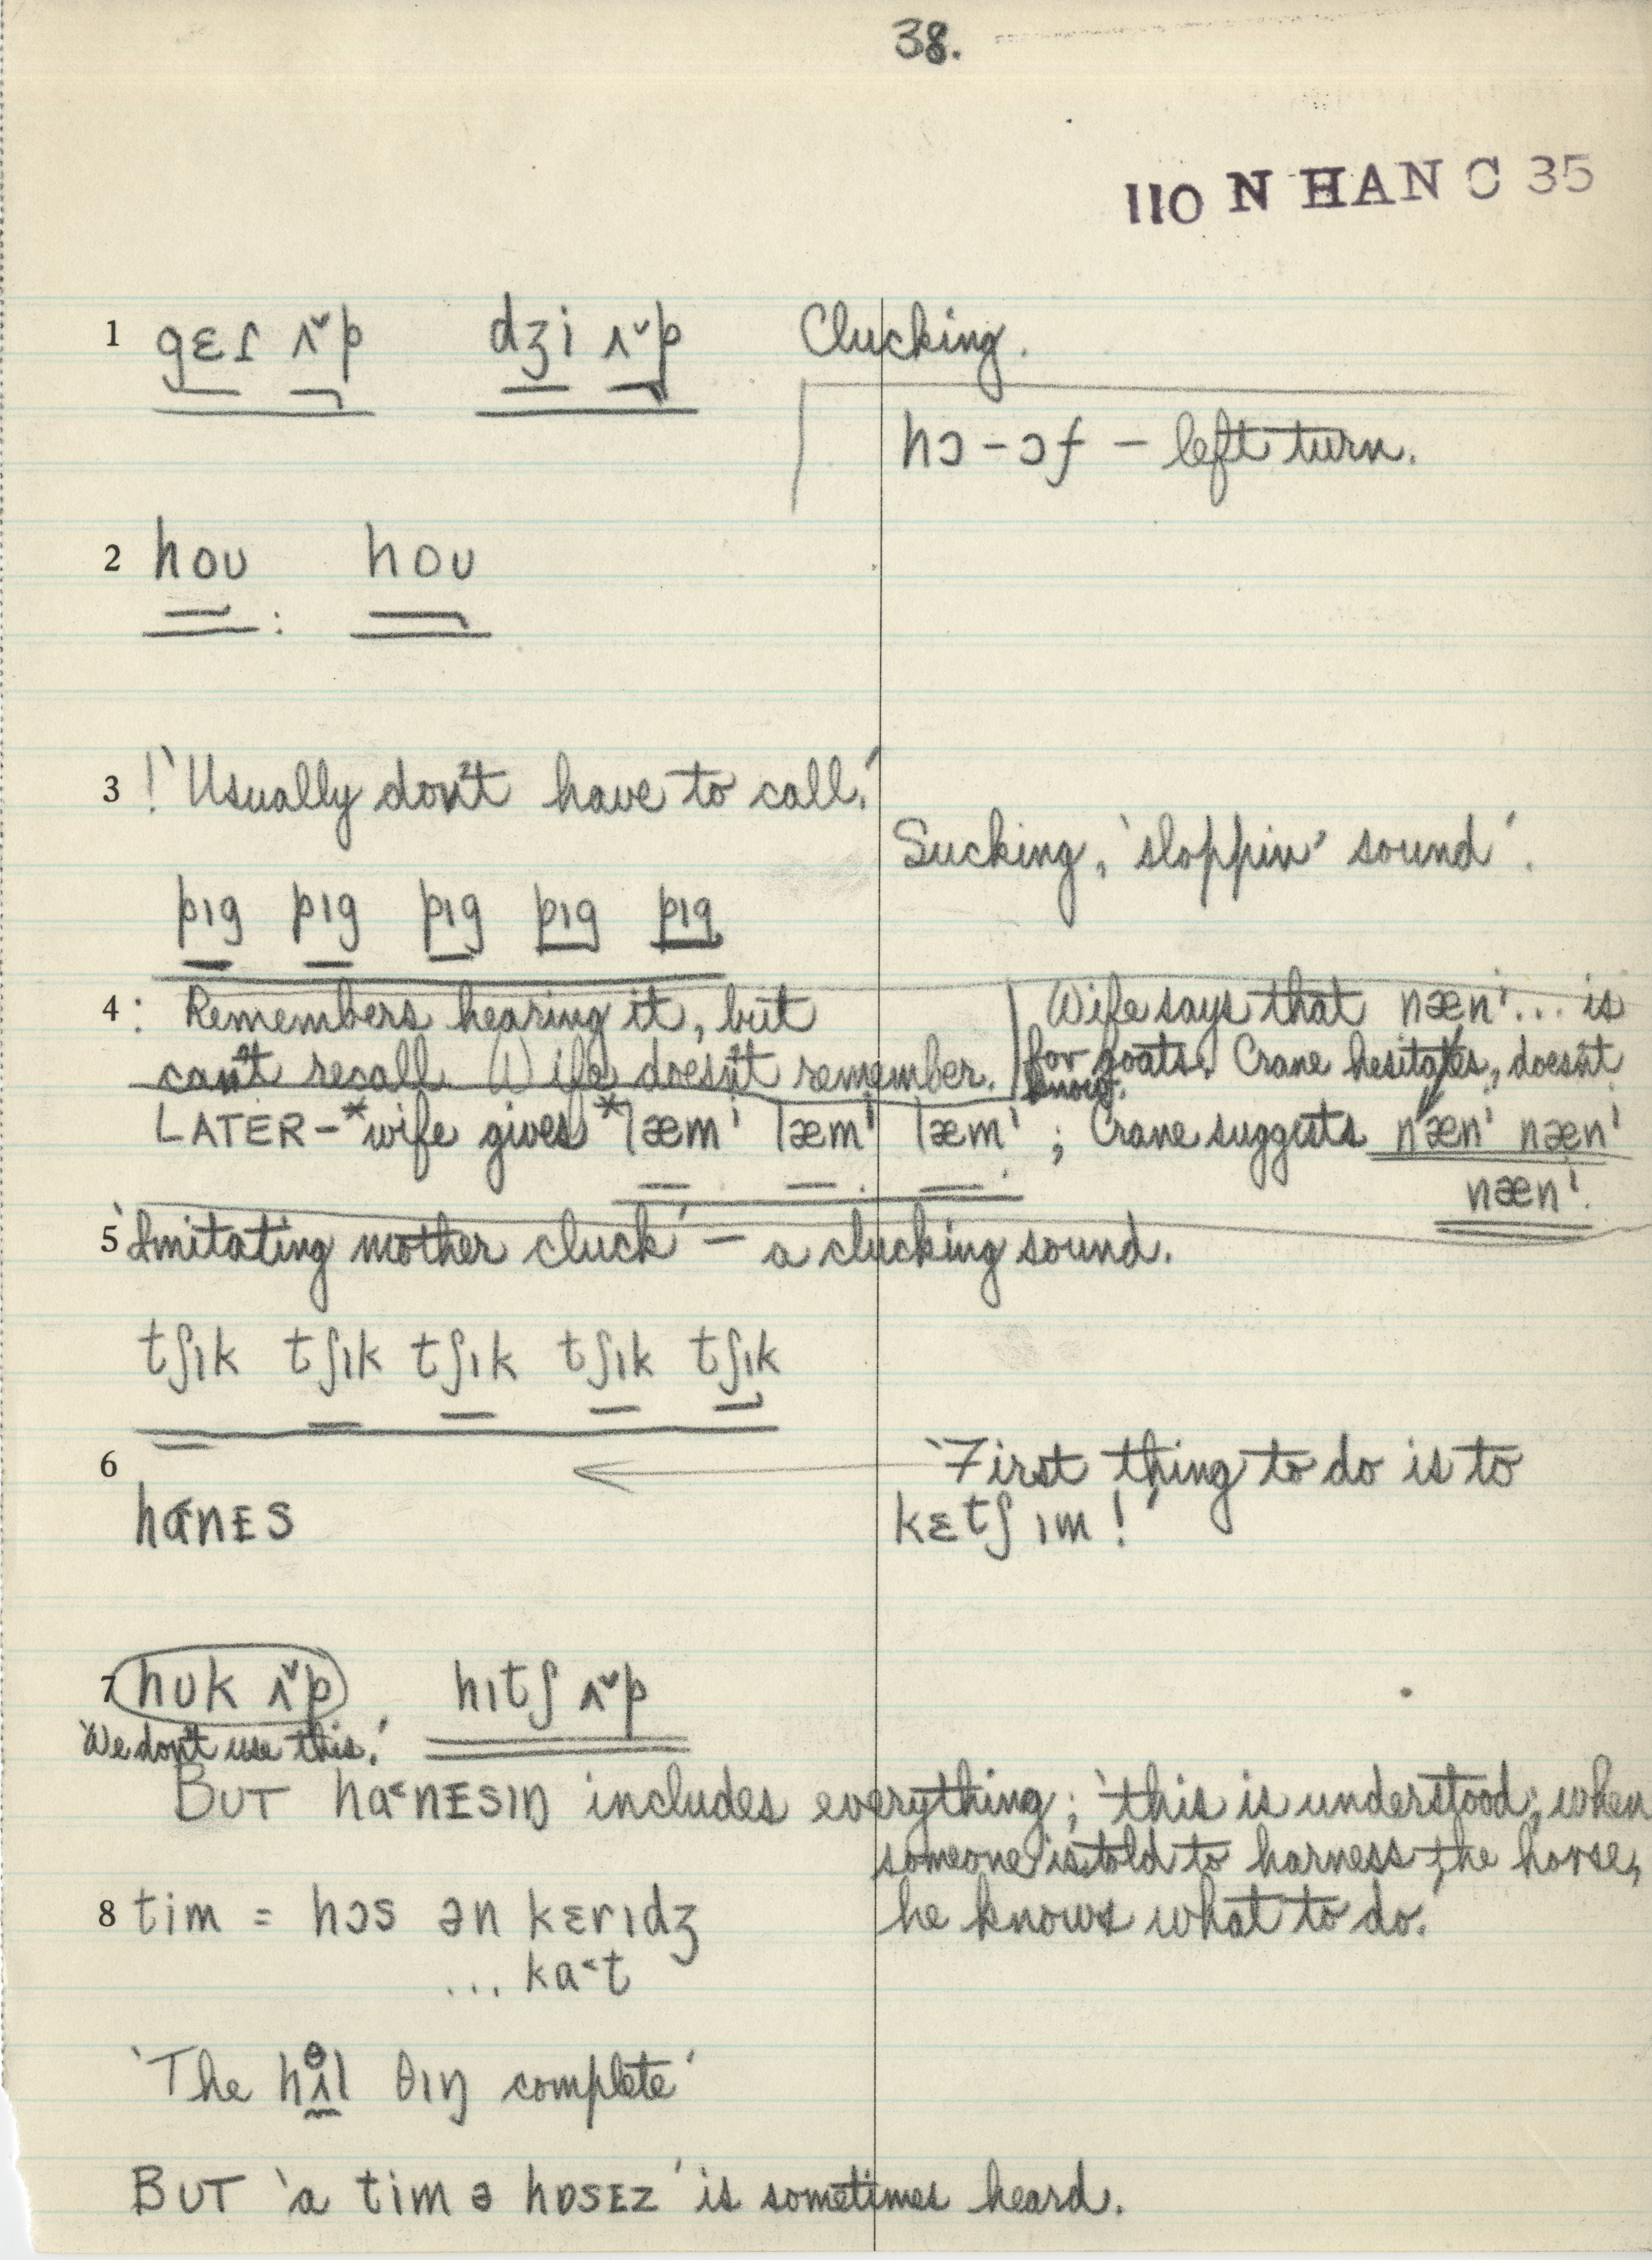 38.
110 N HAN C 35
1 gɛɾ ʌ̌p dʒi ʌ̌p Clucking.
hɔ-ɔf – left turn.
2 hoʊ : hoʊ
3 ! 'Usually don't have to call.'
Sucking, 'sloppin' sound'.
pɪg pɪg pɪg pɪg pɪg
4 : Remembers hearing it, but
can't recall. Wife doesn't remember.
Wife says that næn!... is
for goats. Crane hesitates, doesn't
know.
LATER – *wife gives *læm! læm! læm! ; Crane suggests næn! næn!
næn!
5 'Imitating mother cluck' – a clucking sound.
tʃɪk tʃɪk tʃɪk tʃɪk tʃɪk
6 'First thing to do is to
kɛtʃ ɪm!'
hɑ˂nᴇs
7 hʊk ʌ̌p hɪtʃ ʌ̌p
'We don't use this.'
BUT hɑ˂nᴇsɪŋ includes everything; 'this is understood; when
someone is told to harness the horse,
he knows what to do.'
8 tim = hɔs ən kɛrɪdʒ
... ka˂t
'The hʌl θɪŋ complete'
BUT 'a tim ə hɒsᴇz' is sometimes heard.